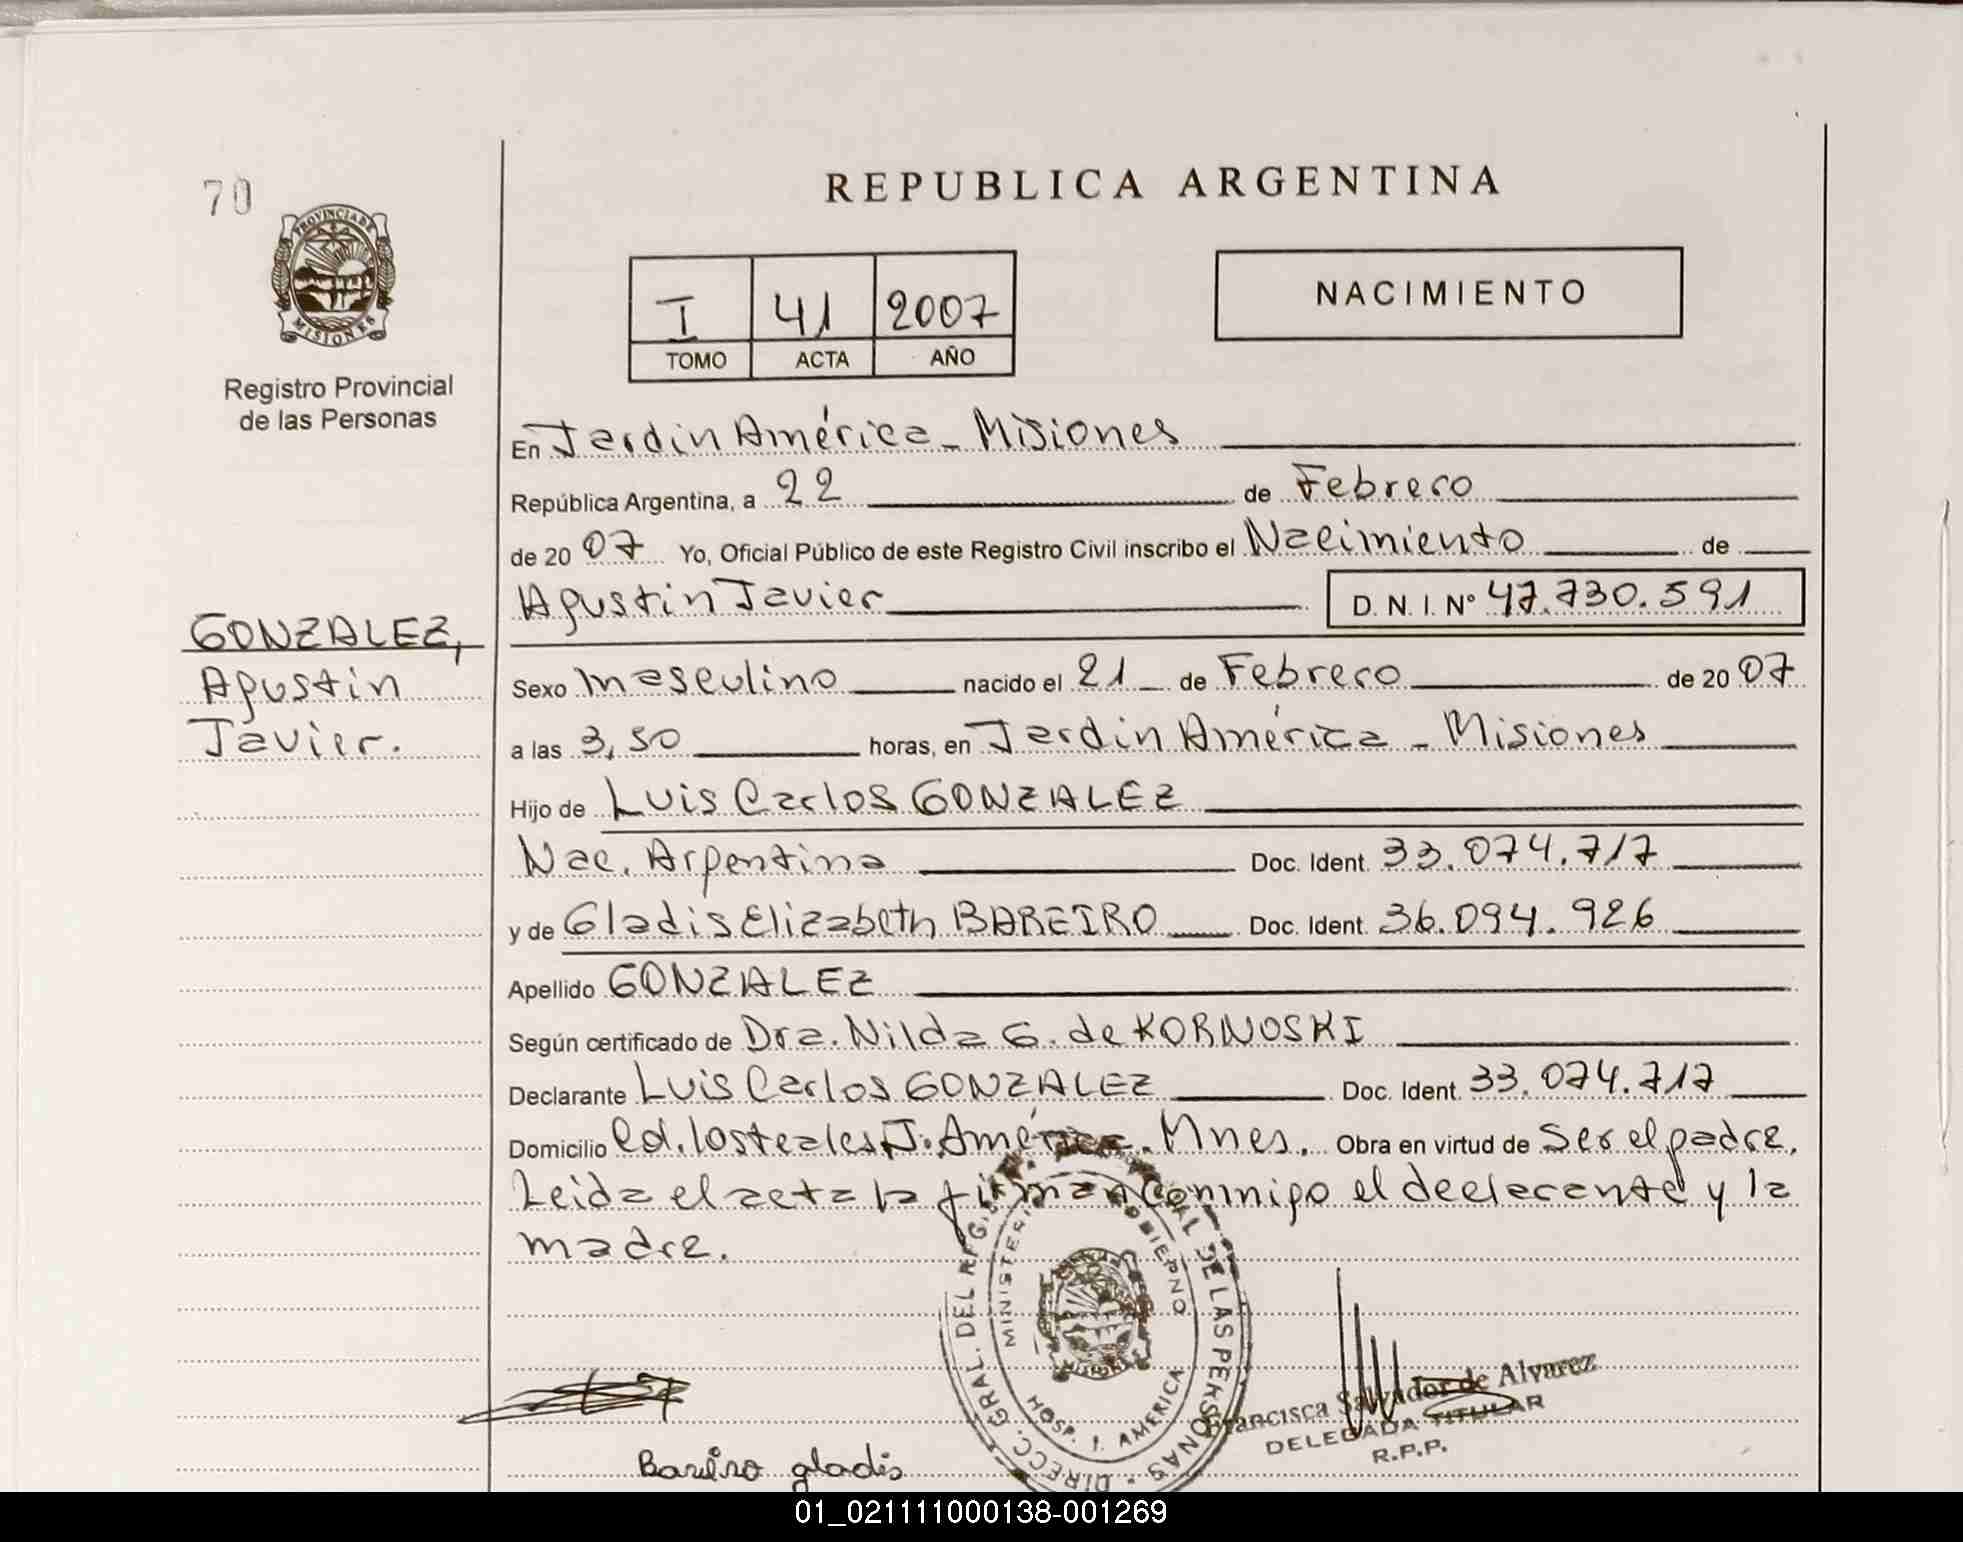 70
PROVINCIA DE
MISIONES
Registro Provincial
de las Personas
REPUBLICA ARGENTINA
I 41 2007
TOMO ACTA AÑO
NACIMIENTO
En Jardin América - Misiones
República Argentina, a 22 de Febrero
de 2007 Yo, Oficial Público de este Registro Civil inscribo el Nacimiento de
Agustin Javier D. N. I. Nº 47.730.591
GONZALEZ,
Agustin
Javier.
Sexo masculino nacido el 21 de Febrero de 2007
a las 3,50 horas, en Jardin América - Misiones
Hijo de Luis Carlos GONZALEZ
Nac. Argentina Doc. Ident. 33.074.717
y de Gladis Elizabeth BAREIRO Doc. Ident. 36.094.926
Apellido GONZALEZ
Según certificado de Dra. Nilda G. de KORNOSKI
Declarante Luis Carlos GONZALEZ Doc. Ident. 33.074.717
Domicilio J. América. Mnes. Obra en virtud de Ser el padre.
Leida el acta la firman conmigo el declarante y la
madre.
DIRECC. GRAL. DEL REGIST PROVINCIAL DE LAS PERSONAS
MINISTERIO GOBIERNO
MISIONES
HOSP. J. AMERICA
Francisca Salvador de Alvarez
DELEGADA TITULAR
R.P.P.
Bareiro gladis
01_021111000138-001269